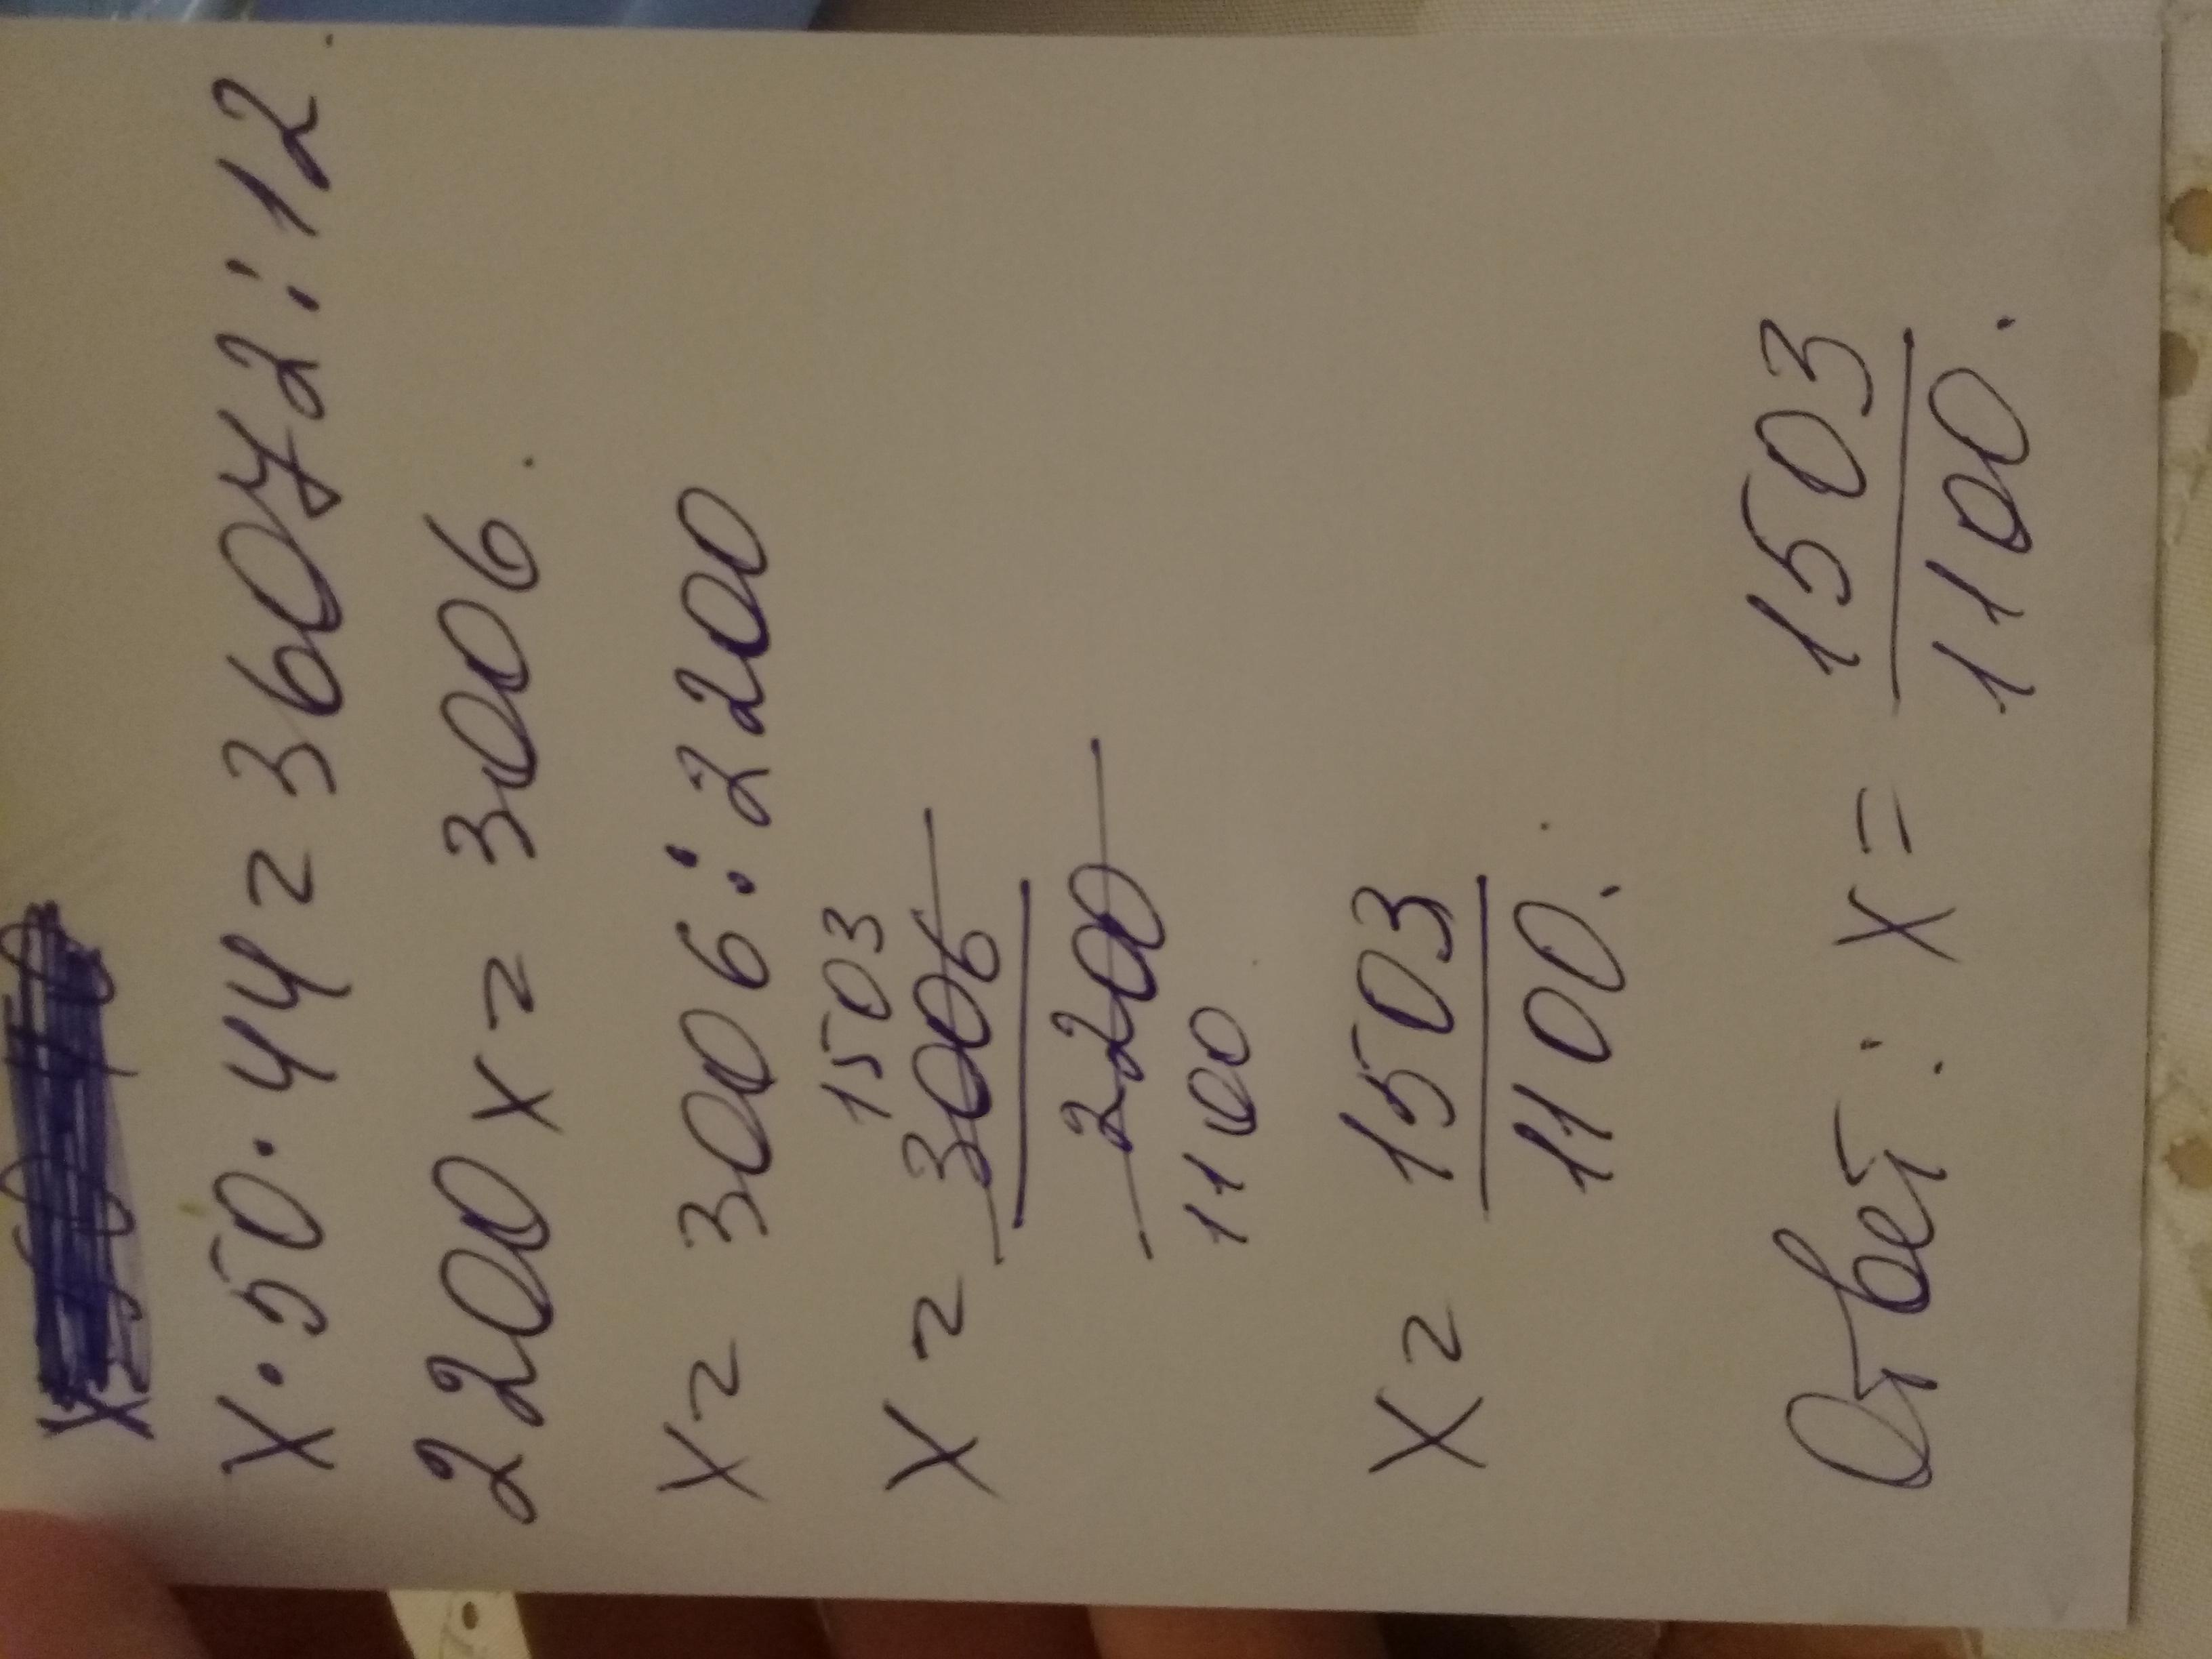 x·50·44=36072:12.
2200x=3006.
x=3006:2200
1503
x=3006/2200
1100
x=1503/1100.
Ответ: x=1503/1100.